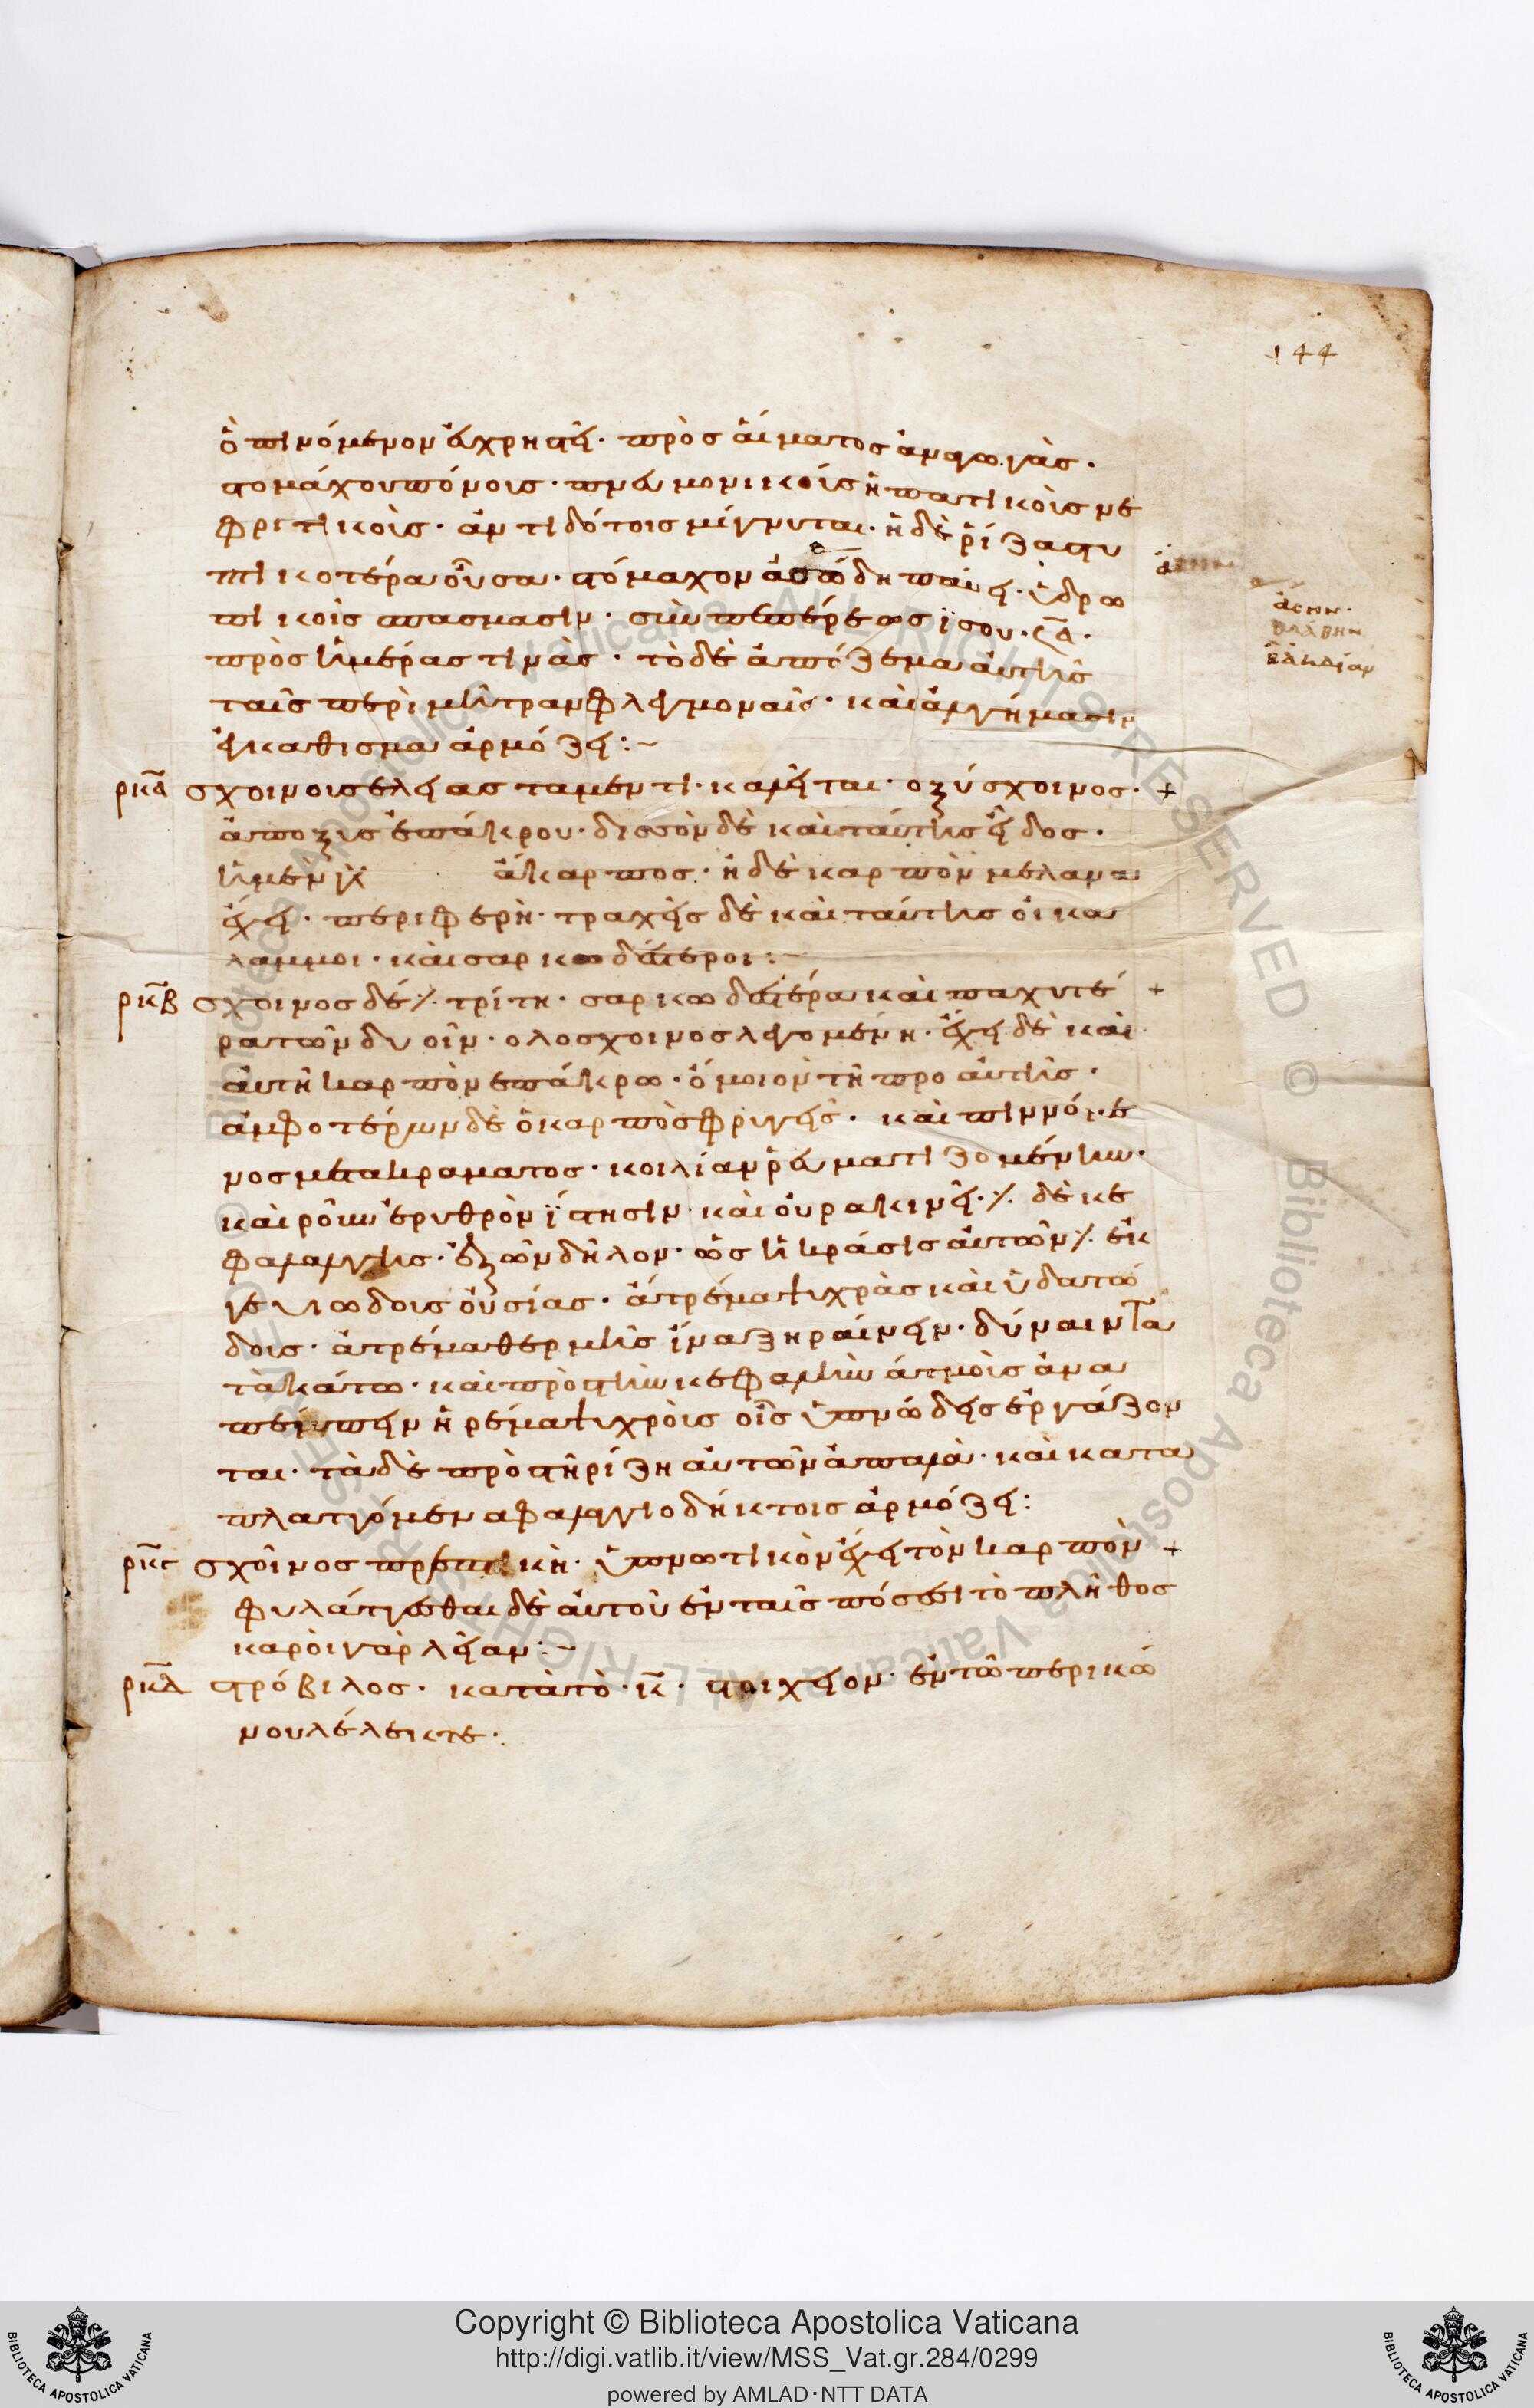 144
ὃ πινόμενον εὐχρηστεῖ· πρὸς αἵματος ἀναγωγὰς·
στομάχου πόνοις· πνευμονικοῖς ἡπατικοῖς νε
φριτικοῖς· ἀντιδότοις μίγνυται· ἡ δὲ ῥίζα στυ
πτικοτέρα οὖσα· στόμαχον ἀσώδη παύει· ὑδρω
πικοῖς σπασμασιν· σὺν πεπέρεως ἴσου·
πρὸς ἡμέρας τινὰς· τὸ δὲ ἀπόζεμα αὐτῆς
ταῖς περὶ μήτραν φλεγμοναῖς· καὶ ἀλγήμασιν
ἐγκάθισμα ἁρμόζει:~
ρκα σχοινου ελείας τα μεν τι· καλεῖται· οξύσχοινος· +
ἄποξυς ἐπάκρου· δισσὸν δὲ καὶ ταύτης εἶδος·
ἡ μὲν γὰρ ἄκαρπος· ἡ δὲ καρπὸν μελανα
ἔχει· περιφερῆ· τραχεῖς δὲ καὶ ταύτης οἱ κα
λαμμοι· καὶ σαρκωδέστεροι:~
ρκβ σχοινος δέ ⁒ τρίτη· σαρκωδεστέρα καὶ παχυτέ +
ρα τῶν δυοῖν· ολοσχοινος λεγομένη· ἔχει δὲ καὶ
αὐτὴ καρπὸν επάκρω· ὅμοιον τῆ προ αὐτῆς·
ἀμφοτέρων δὲ ὁ καρπὸς φρυγεὶς· καὶ πιννόμε
νος μετα κραματος· κοιλίαν ῥευματιζομένην·
καὶ ροῦν ἐρυθρὸν ἵστησιν· καὶ οὖρα κινεῖ· ⁒ δὲ κε
φαλαλγὴς· ἐξ ὧν δῆλον· ὡς ἡ κράσις αὐτῶν ⁒ ἐκ
γεώδους οὐσίας· ἀτρέμα ψυχρὰς καὶ ὑδατώ
δους· ἀτρέμα θερμῆς ἵνα ξηραίνειν· δύναιντα
τὰ κάτω· καὶ πρὸς τὴν κεφαλὴν ἀτμοὺς ἀνα
πέμπειν ἠρέμα ψυχροὺς οἷς ὑπνώδεις ἐργάζον
ται· τὰ δὲ πρὸς τῆ ρίζη αὐτῶν ἁπαλὰ· καὶ κατα
πλαττόμεν α φαλαγγιοδήκτοις ἁρμόζει:
ρκγ σχοῖνος ὑπνωτικὸν ἔχει τὸν καρπὸν +
φυλάττεσθαι δὲ αὐτοῦ ἐν ταῖς πόσεσι τὸ πλῆθος
καροῖ γὰρ λείαν:~
ρκδ στρόβιλος· κατὰ τὸ· κ· στοιχεῖον· ἐν τῶ περι κώ
νου λέλεκται·
ἄσην·
βλάβην
Copyright © Biblioteca Apostolica Vaticana
http://digi.vatlib.it/view/MSS_Vat.gr.284/0299
powered by AMLAD·NTT DATA